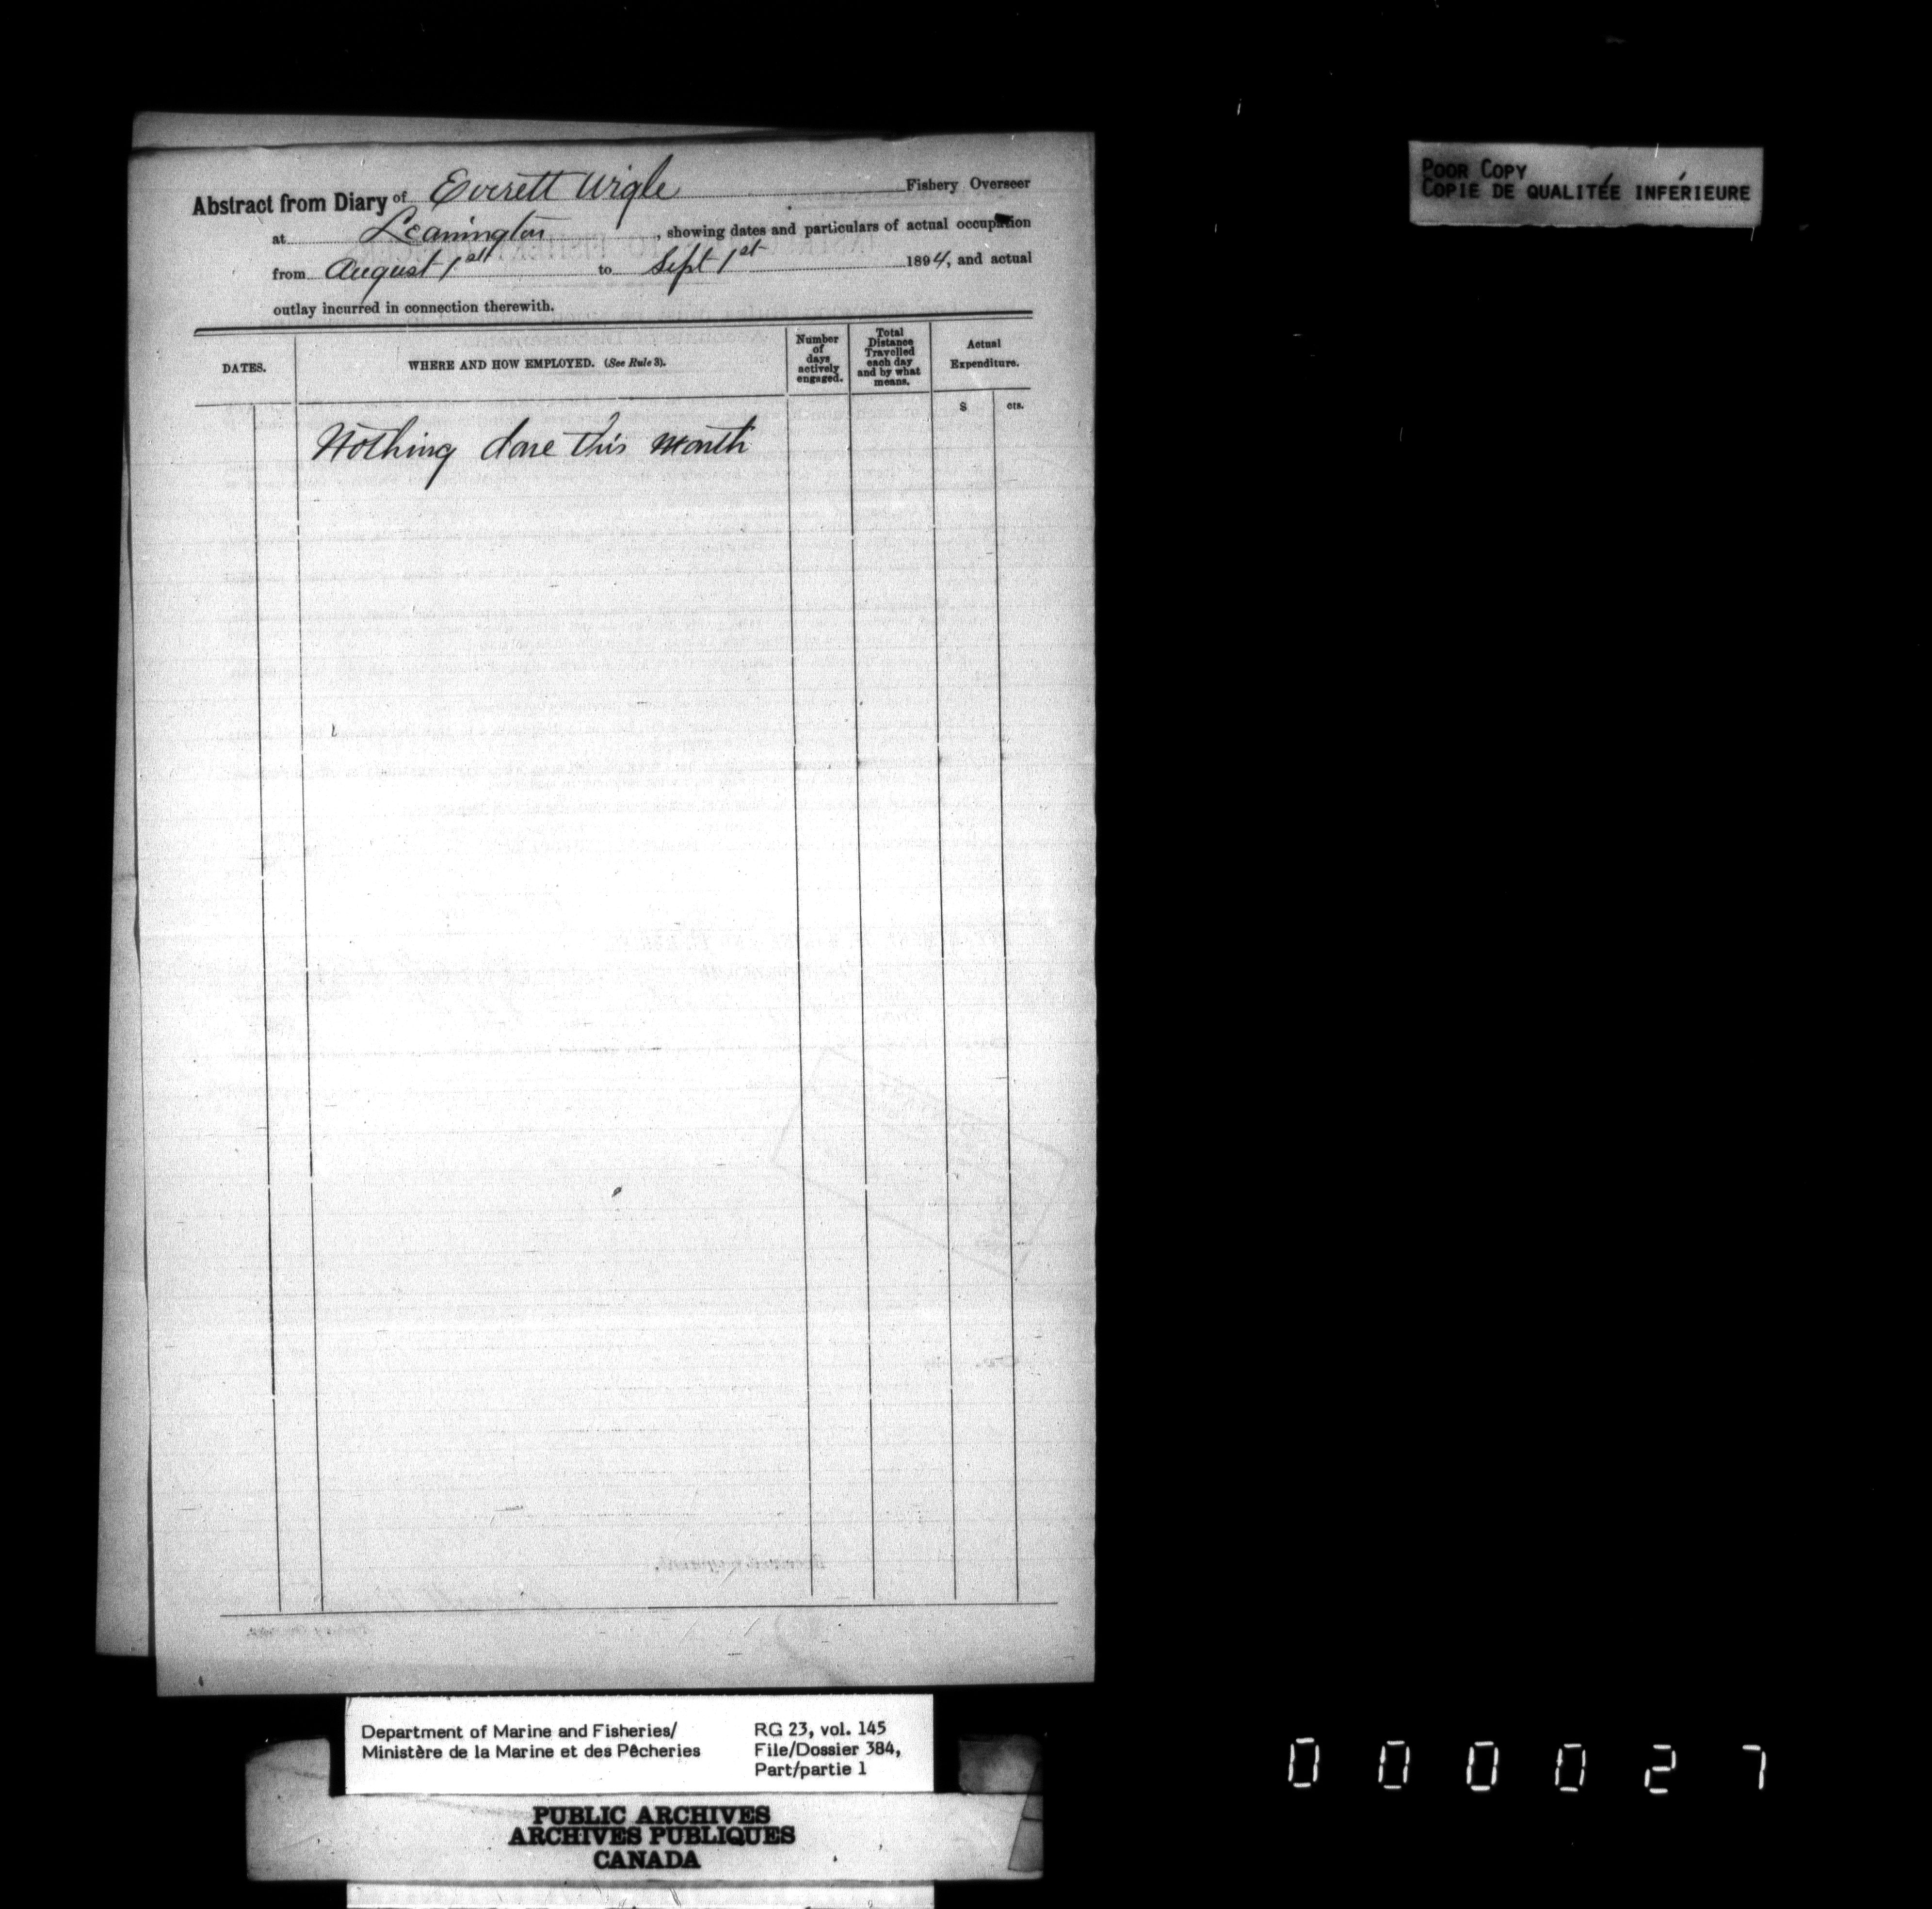 Abstract from Diary of Everett Wigle Fishery Overseer
at Leamington, showing dates and particulars of actual occupation
from August 1st to Sept 1st 1894, and actual
outlay incurred in connection therewith.
DATES.
WHERE AND HOW EMPLOYED. (See Rule 3).
Number
of
days
actively
engaged.
Total
Distance
Travelled
each day
and by what
means.
Actual
Expenditure.
$ cts.
Nothing done this month
POOR COPY
COPIE DE QUALITÉE INFÉRIEURE
Department of Marine and Fisheries/
Ministère de la Marine et des Pêcheries
RG 23, vol. 145
File/Dossier 384,
Part/partie 1
PUBLIC ARCHIVES
ARCHIVES PUBLIQUES
CANADA
000027